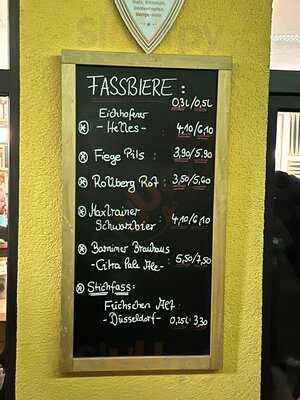 FASSBIERE:
0,3L/0,5L
Eichhofener
- Helles - : 4,10/6,10
Fiege Pils : 3,90/5,90
Rollberg Rot : 3,50/5,60
Maxlrainer
Schwarzbier : 4,10/6,10
Barnimer Brauhaus
- Citra Pale Ale - : 5,50/7,50
Stichfass:
Füchschen Alt :
- Düsseldorf - 0,25L: 3,30